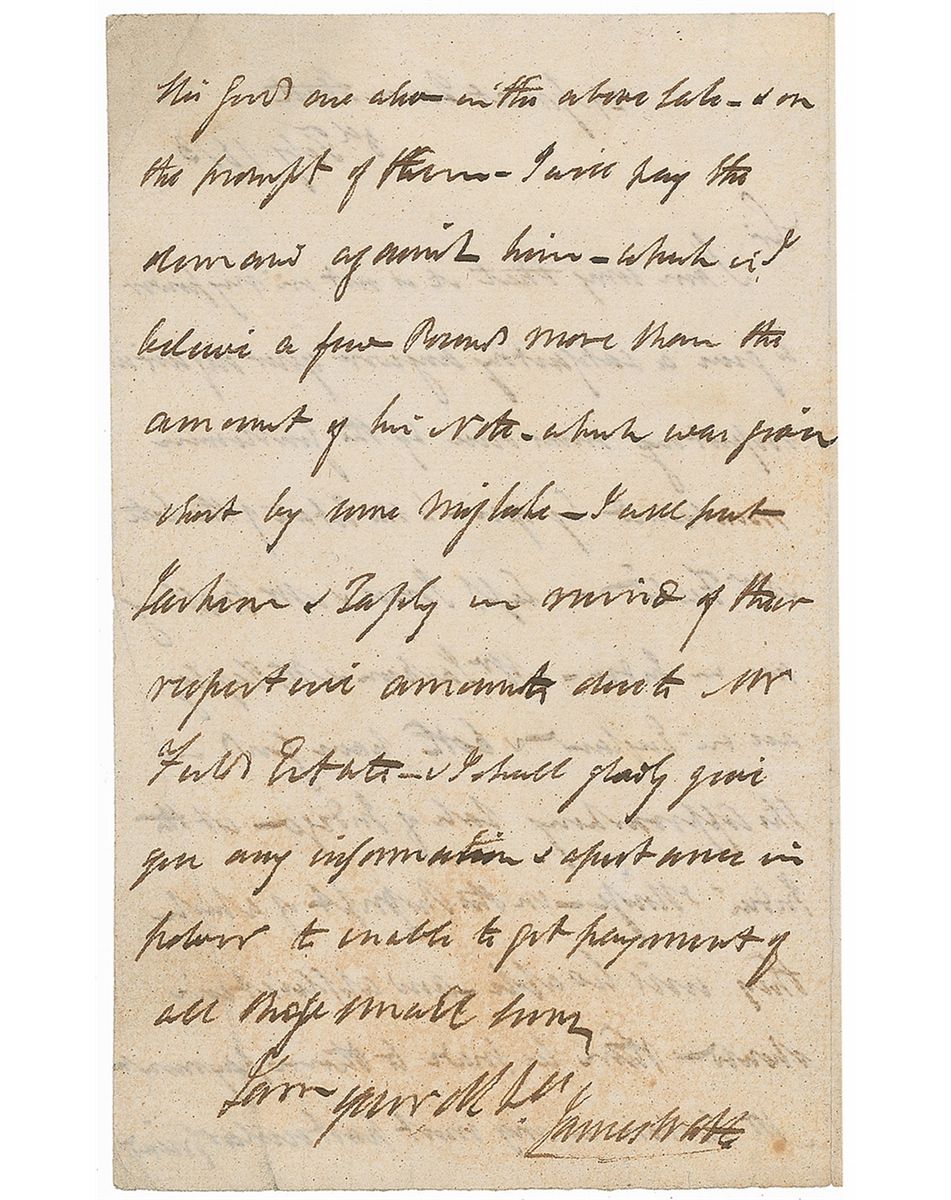 his Goods are also in the above Sale - & on
the prompt of them - I will pay the
demand against him - which is I
believe a few Pounds more than the
amount of his Note - which was given
short by some Mistake - I will put
Jackson & Taply in mind of their
respective amounts due to Mr
Fields Estate - & I shall gladly give
you any information & assistance in
power to enable to get payment of
all those small sums
I am your Ob Sr
James Watt